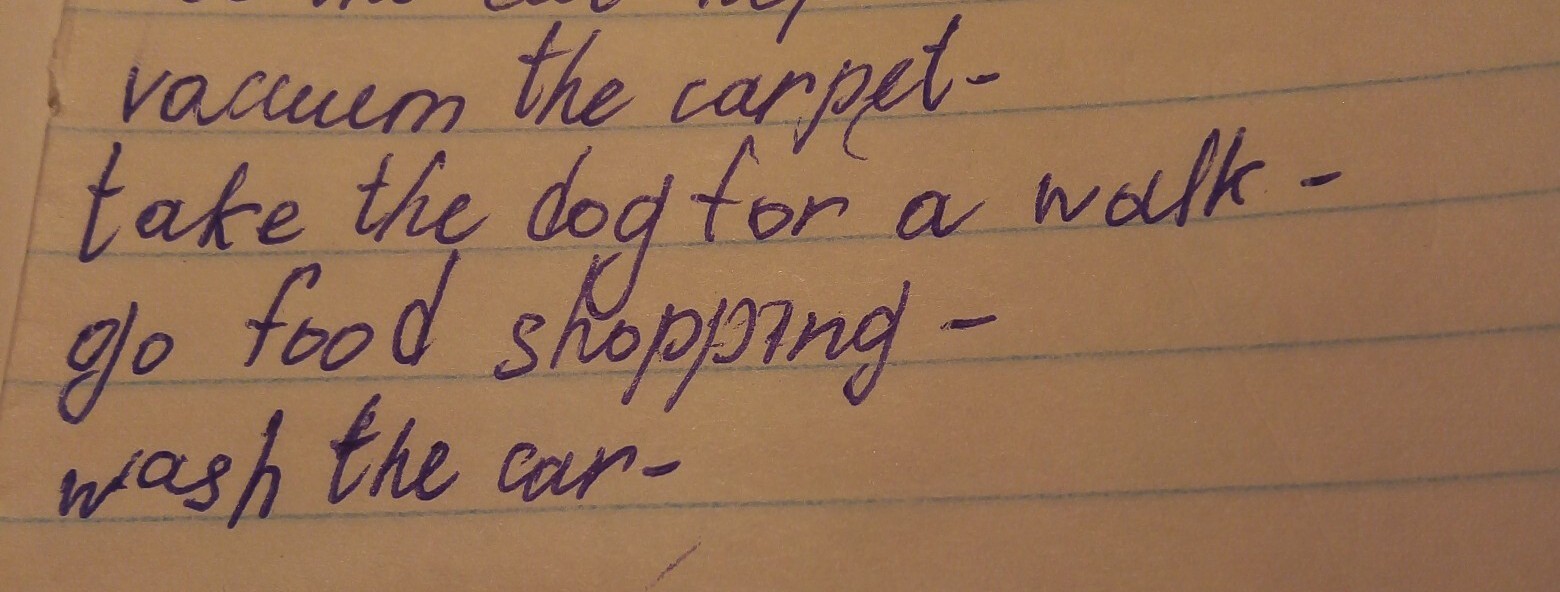 vacuum the carpet-
take the dog for a walk -
go food shopping -
wash the car-